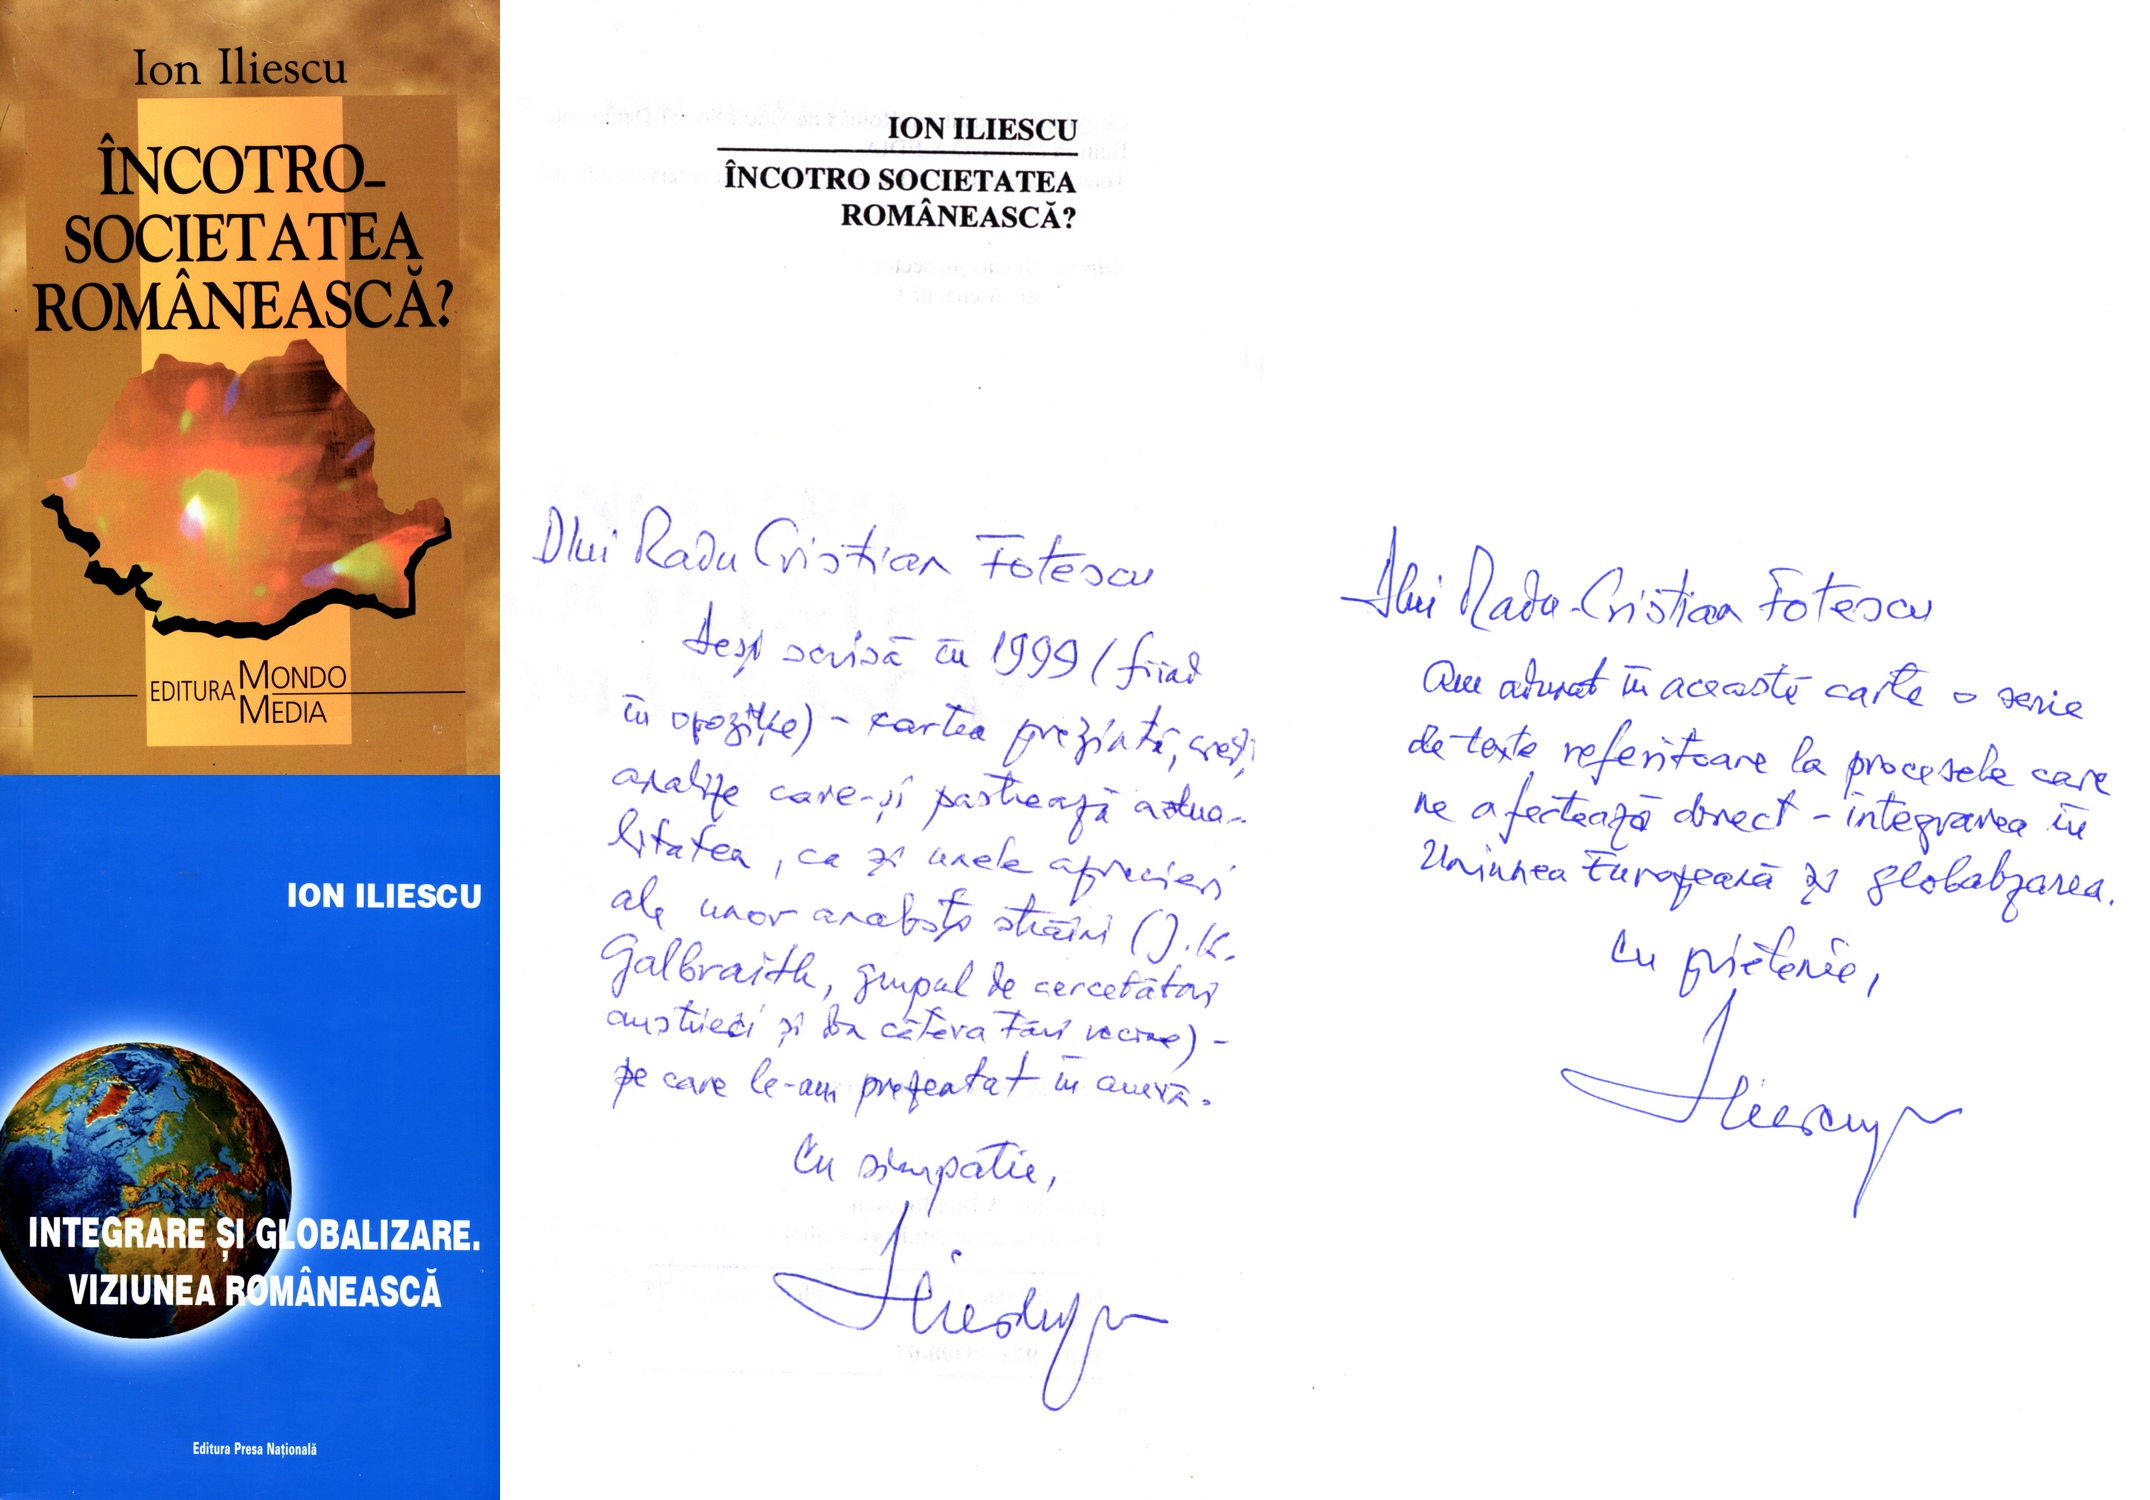 Ion Iliescu
ÎNCOTRO-
SOCIETATEA
ROMÂNEASCĂ?
EDITURA MONDO
MEDIA
ION ILIESCU
INTEGRARE ȘI GLOBALIZARE.
VIZIUNEA ROMÂNEASCĂ
Editura Presa Națională
ION ILIESCU
ÎNCOTRO SOCIETATEA
ROMÂNEASCĂ?
Dlui Radu Cristian Fotescu
Deși scrisă în 1999 (fiind
în opoziție) – cartea prezintă, cred,
analize care-și păstrează actua-
litatea, ca și unele aprecieri
ale unor analiști străini (J.K.
Galbraith, grupul de cercetători
austrieci și din câteva țări vecine) –
pe care le-am prezentat în anexă.
Cu simpatie,
Iliescu
Dlui Radu-Cristian Fotescu
Am adunat în această carte o serie
de texte referitoare la procesele care
ne afectează direct – integrarea în
Uniunea Europeană și globalizarea.
Cu prietenie,
Iliescu